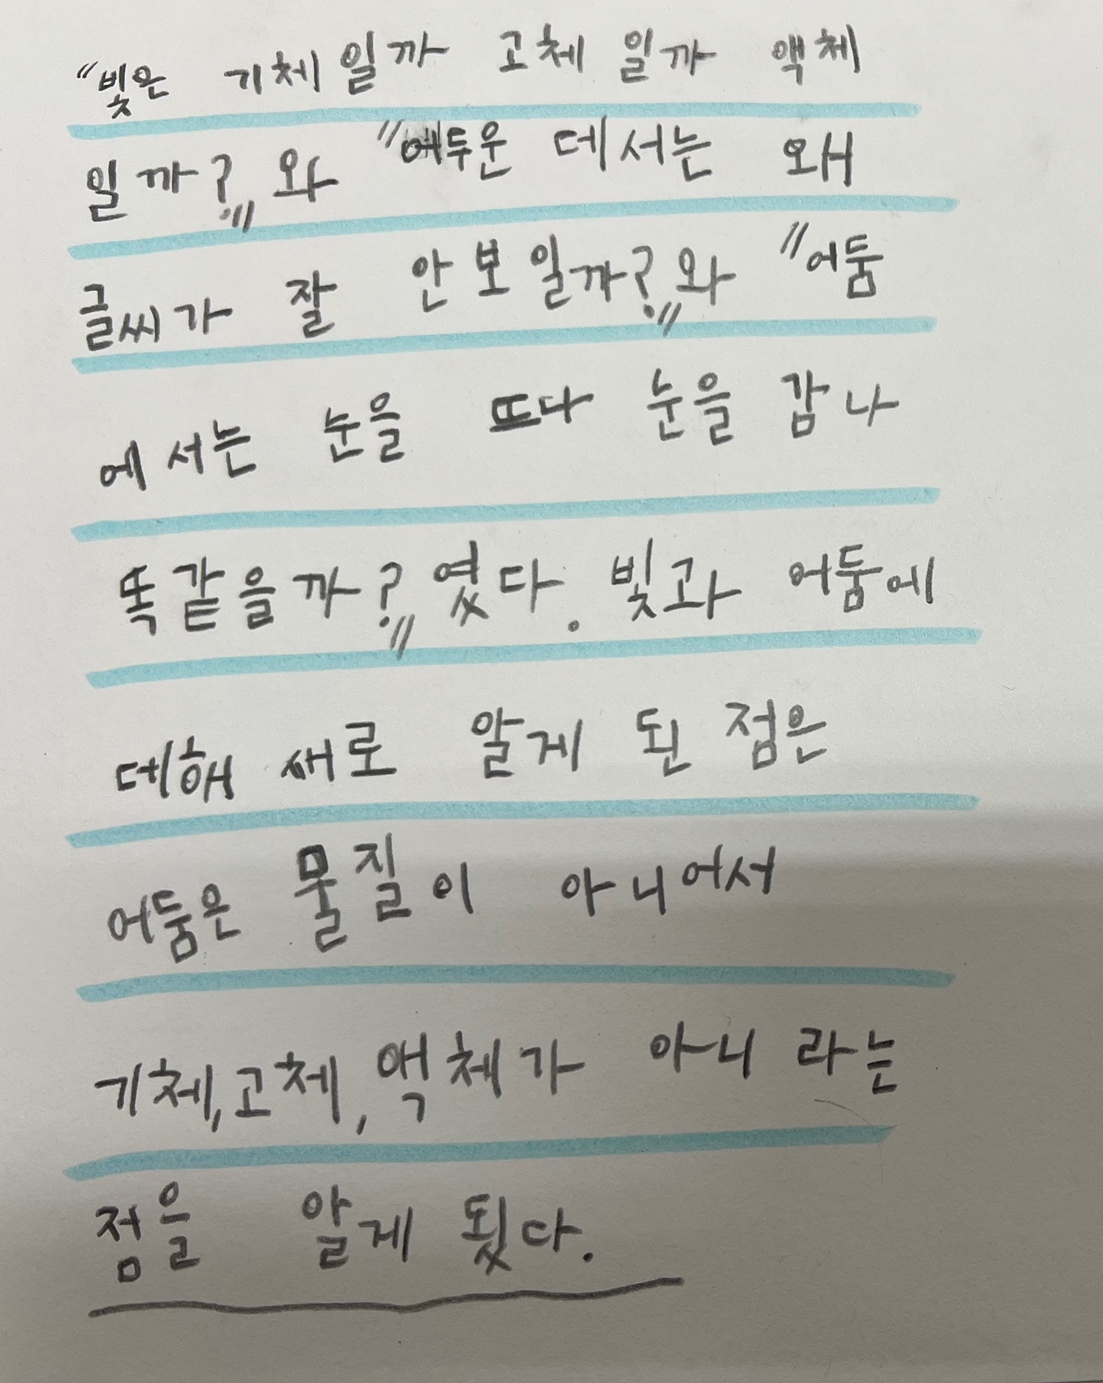 "빛은 기체일까 고체 일까 액체
일까?"와 "어두운 데서는 왜
글씨가 잘 안보일까?"와 "어둠
에서는 눈을 뜨다 눈을 감나
똑같을까?"였다. 빛과 어둠에
대해 새로 알게 된 점은
어둠은 물질이 아니어서
기체,고체,액체가 아니 라는
점을 알게 됬다.